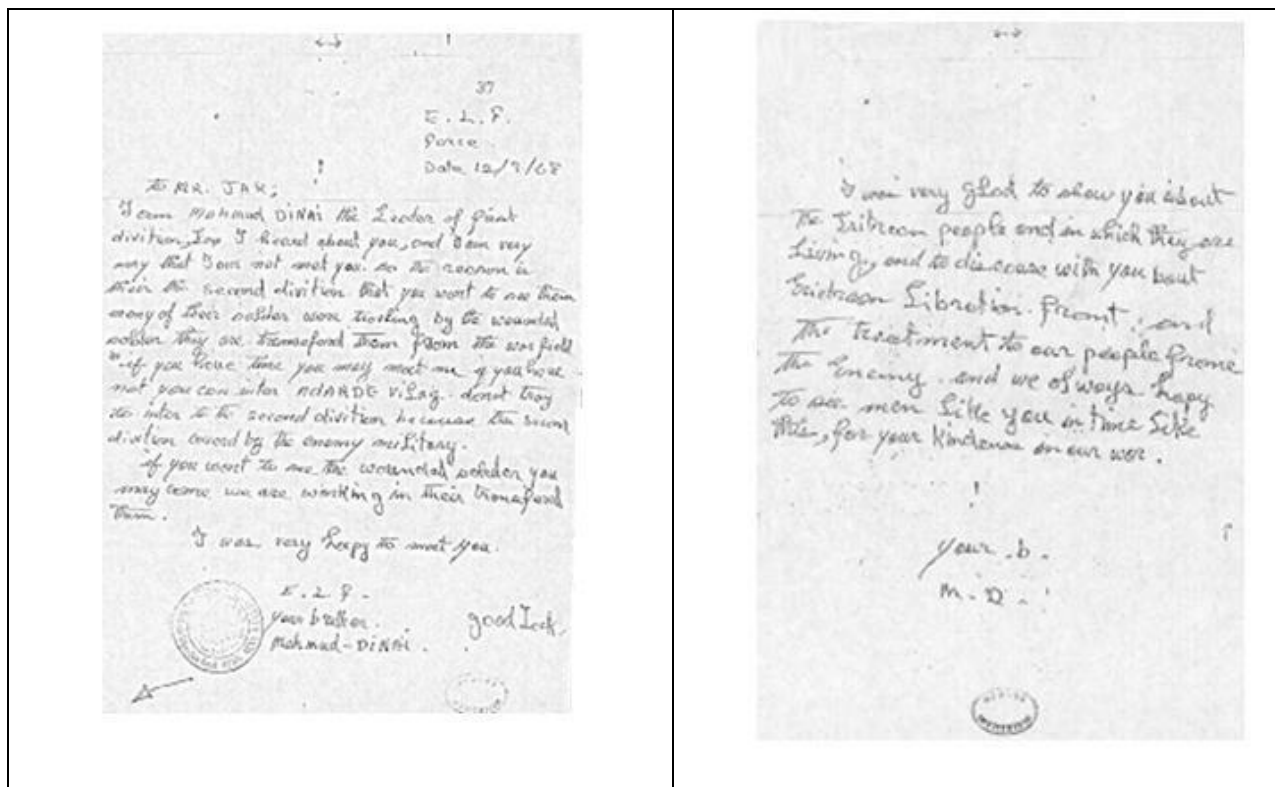 37
E. L. F.
Force
Date 12/9/68
to MR. JAK;
I am Mahmud DiNAi the Leader of
divition, I heard about you, and I am very
that I am not met you. so the reason is
their the second division that you wont to see them
many of their solder were working by the wounded
solder they are transfard them from the war field
"if you have time you may meet me if you have
not you can inter ADARDE Vilag. donot tray
to inter to the second division because the
divition by the enemy militory.
if you went to see the wounded solder you
may come we are working in their transfard
them.
I was very hapy to meet you.
E. L. F.
your brother.
Mahmud-DiNAi.
good Lack.
I was very glad to show you about
The people and in which they are
Living, and to with you bout
Libretion Front; and
the treatiment to our people frome
the Enemy. and we always hapy
to see men Like you in time Like
this, for your kindence on our wor.
!
your .b.
M. D.